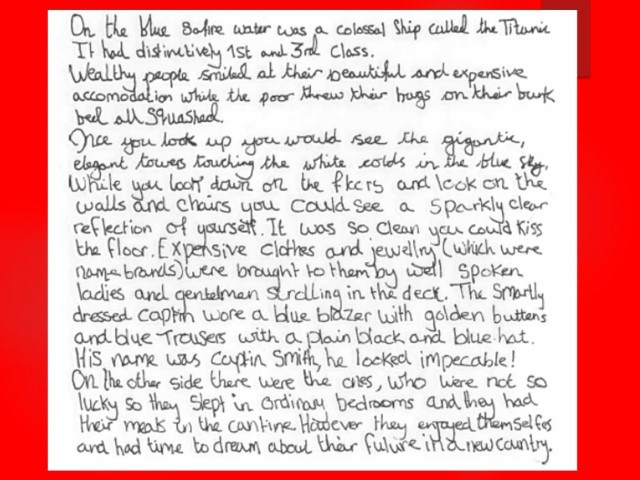 On the blue Safire water was a colossal Ship called the Titanic
It had distinctively 1st and 3rd Class.
Wealthy people smiled at their beautiful and expensive
accomodation while the poor threw their bags on their bunk
bed all Squashed.
Once you look up you would see the gigantic,
elegant towers touching the white colds in the blue sky.
While you look down on the flcors and look on the
walls and chairs you could see a sparkly clear
reflection of yourself. It was so clean you could kiss
the floor. Expensive clothes and jewellry (which were
name brands) were brought to them by well spoken
ladies and gentelman strolling in the deck. The Smartly
dressed captin wore a blue blazer with golden buttens
and blue Trousers with a plain black and blue hat.
His name was Captin Smith, he looked impecable!
On the other side there were the ones, who were not so
lucky so they slept in ordinary bedrooms and they had
their meals in the cantine. However they enjoyed themselfes
and had time to dream about their future in a new country.